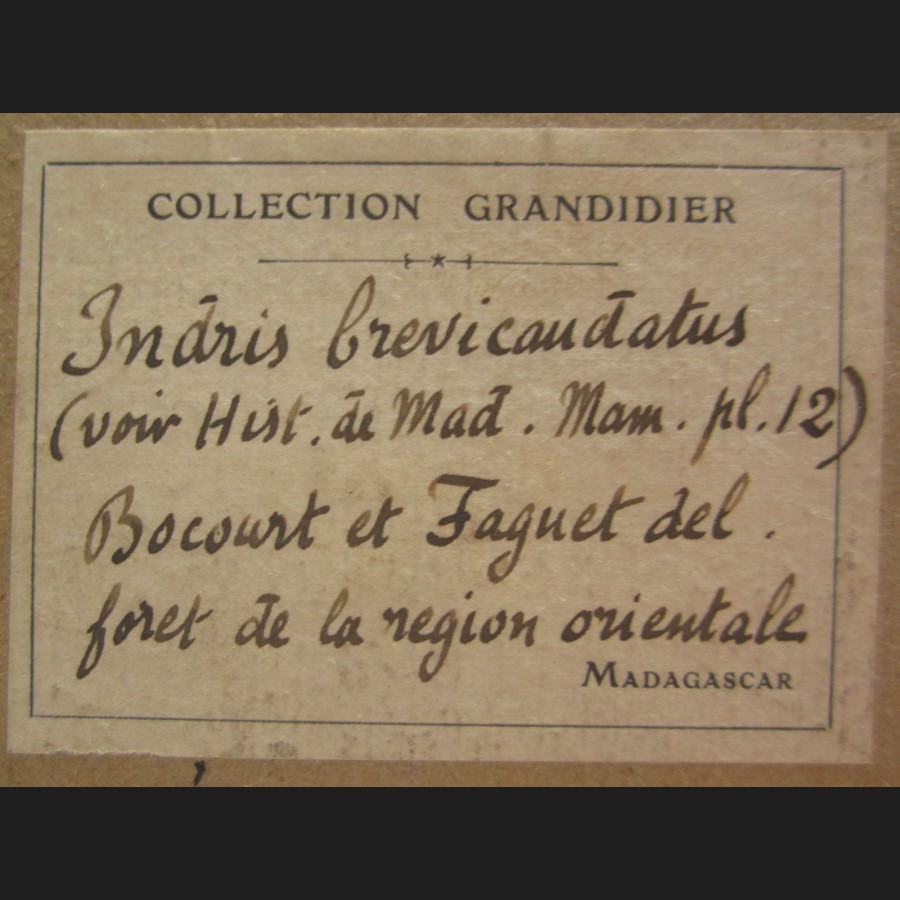 COLLECTION GRANDIDIER
Indris brevicaudatus
(voir Hist. de Mad. Mam. pl. 12)
Bocourt et Faguet del.
foret de la region orientale
MADAGASCAR